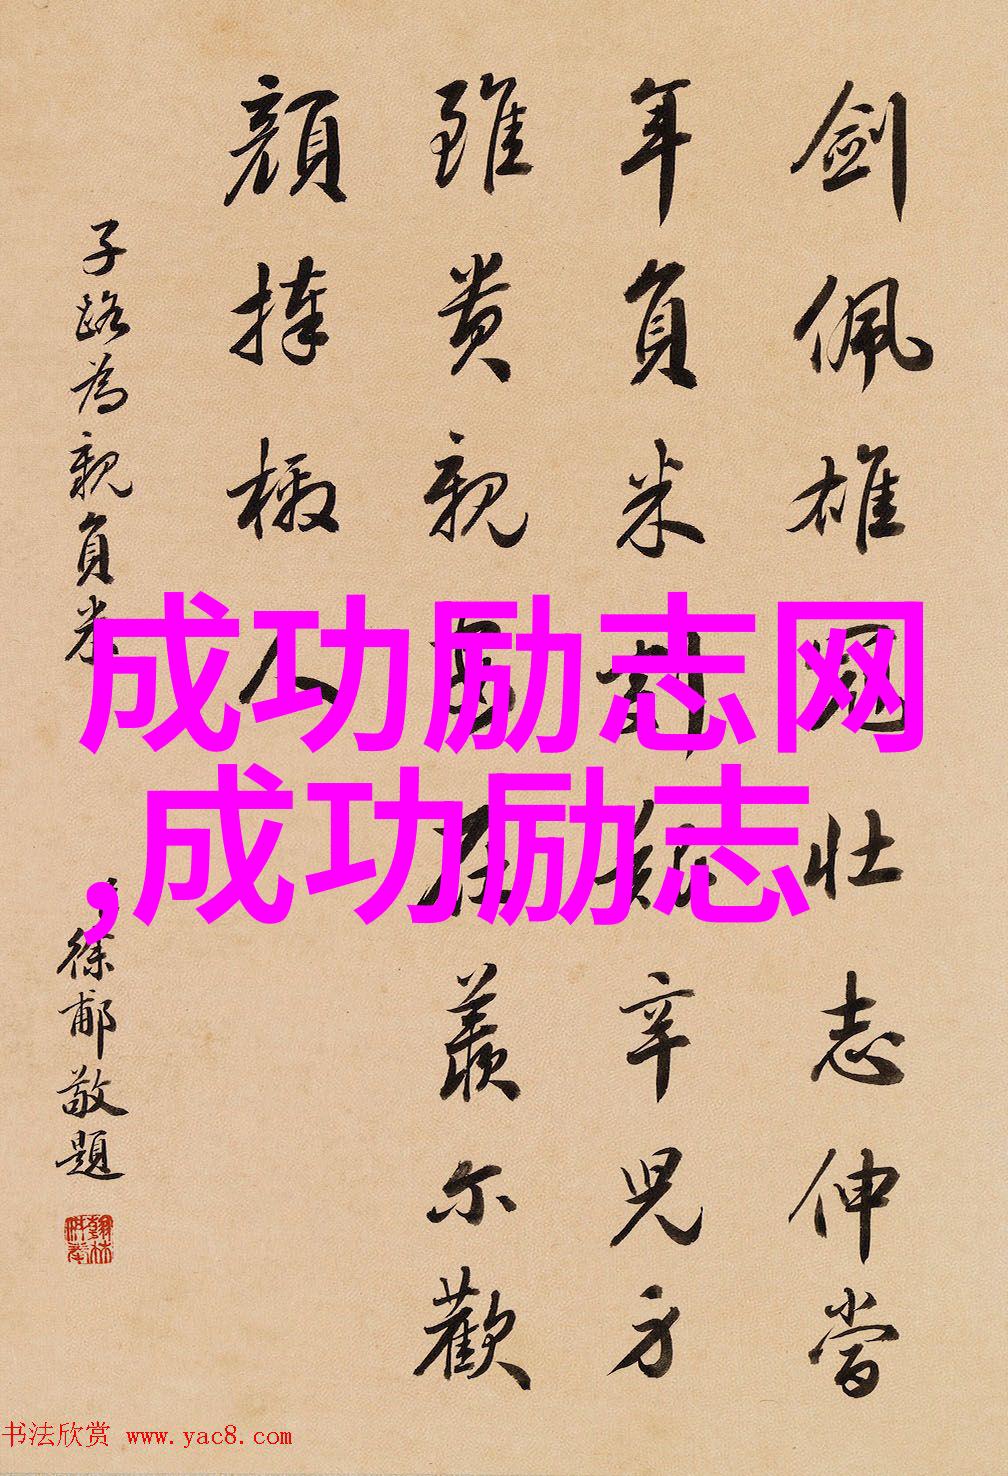 劍佩雄冠壮志伸當
年負米辛兒
雖貴親羨尔歡
顏捧檄人
子路為親負米
徐郙敬題
成功励志网
,成功励志
书法欣赏 www.yac8.com